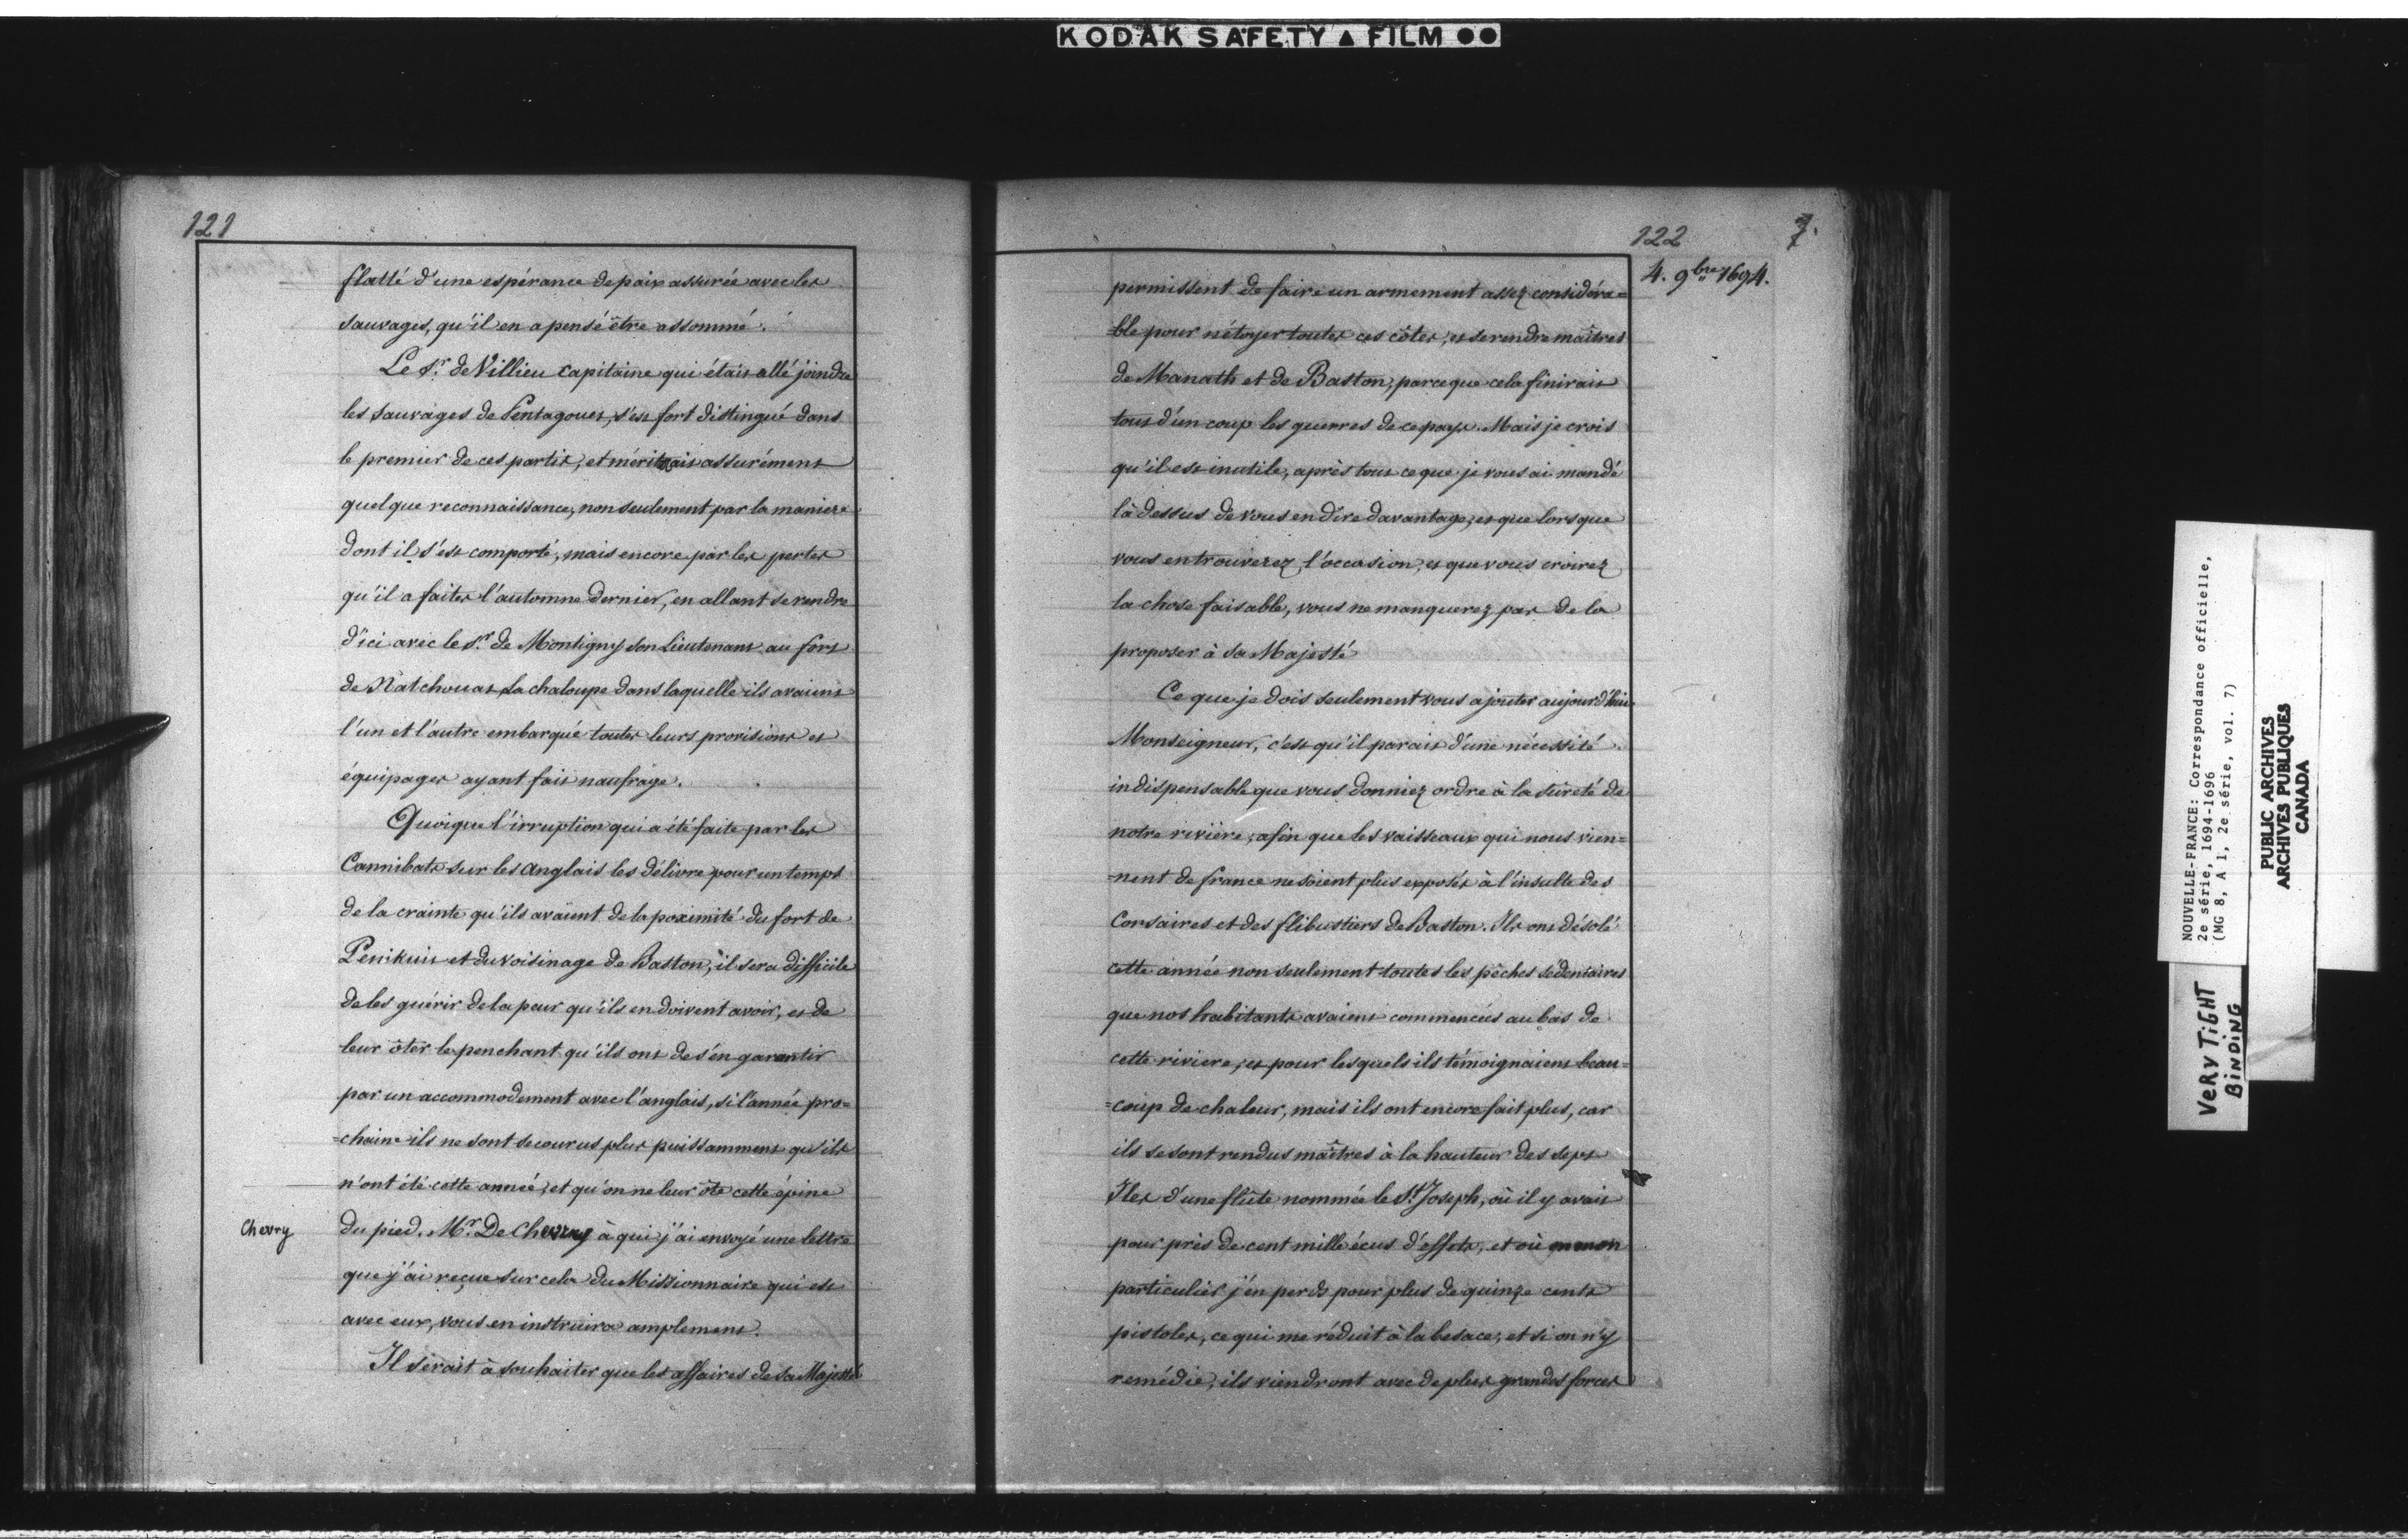 KODAK SAFETY ▲ FILM ●●
121
flatté d'une espérance de paix assurée avec les
sauvages, qu'il en a pensé être assommé.
Le Sr. de Villieu Capitaine qui étais allé joindre
les Sauvages de Pentagouet, s'est fort distingué dans
le premier de ces partis, et méritait assurément
quelque reconnaissance, non seulement par la maniere
dont il s'est comporté, mais encore par les pertes
qu'il a faites l'automne dernier, en allant se rendre
d'ici avec le Sr. de Montigny son Lieutenant au fort
de Natchouat La chaloupe dans laquelle ils avaient
l'un et l'autre embarqué toutes leurs provisions et
équipages ayant fait naufrage.
Quoique l'irruption qui a été faite par les
Cannibats sur les Anglais les délivre pour un temps
de la crainte qu'ils avaient de la poximité du fort de
Penikuit et du voisinage de Baston, il sera difficile
de les guérir de la peur qu'ils en doivent avoir, et de
leur ôter le penchant qu'ils ont de s'en garantir
par un accommodement avec l'anglais, si l'année pro=
=chaine ils ne sont secourus plus puissamment qu'ils
n'ont été cette année, et qu'on ne leur ôte cette épine
Chevry
du pied. Mr. De Chevry à qui j'ai envoyé une lettre
que j'ai reçue sur cela du Missionnaire qui est
avec eux, vous en instruira amplement.
Il serait à souhaiter que les affaires de sa Majesté
122
7.
4. 9bre 1694.
permissent de faire un armement assez considéra=
=ble pour nétoyer toutes ces côtes, et se rendre maîtres
de Manath et de Baston, parceque cela finirait
tout d'un coup les guerres de ce pays. Mais je crois
qu'il est inutile, après tout ce que je vous ai mandé
là dessus de vous en dire davantage, et que lorsque
vous en trouverez l'occasion, et que vous croirez
la chose faisable, vous ne manquerez pas de la
proposer à Sa Majesté
Ce que je dois seulement vous ajouter aujourd'hui
Monseigneur, c'est qu'il parait d'une nécessité
indispensable que vous donniez ordre à la sûreté de
notre rivière, afin que les vaisseaux qui nous vien=
=nent de france ne soient plus exposés à l'insulte des
Corsaires et des flibustiers de Baston. Ils ont désolé
cette année non seulement toutes les pêches sédentaires
que nos habitants avaient commencées au bas de
cette riviere, et pour lesquels ils témoignaient beau=
=coup de chaleur, mais ils ont encore fait plus, car
ils se sont rendus maîtres à la hauteur des Sept
Iles d'une flûte nommée le St. Joseph, où il y avait
pour près de cent mille écus d'effets, et où en mon
particulier j'en perds pour plus de quinze cents
pistoles, ce qui me réduit à la besace, et si on n'y
remédie, ils viendront avec de plus grandes forces
NOUVELLE-FRANCE: Correspondance officielle,
2e série, 1694-1696
(MG 8, A 1, 2e série, vol. 7)
PUBLIC ARCHIVES
ARCHIVES PUBLIQUES
CANADA
VERY TIGHT
BINDING